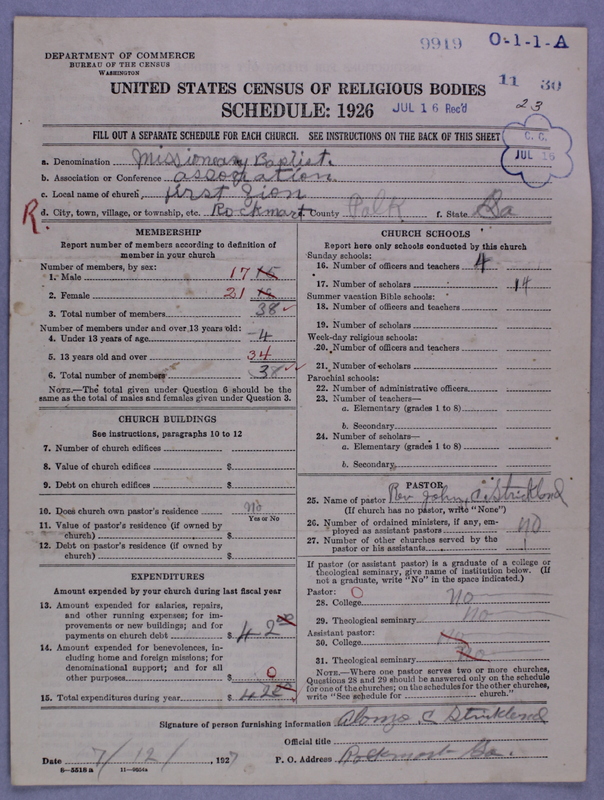 DEPARTMENT OF COMMERCE
BUREAU OF THE CENSUS
WASHINGTON
9919 O-1-1-A
UNITED STATES CENSUS OF RELIGIOUS BODIES
11 30
SCHEDULE: 1926 JUL 16 Rec'd 23
FILL OUT A SEPARATE SCHEDULE FOR EACH CHURCH. SEE INSTRUCTIONS ON THE BACK OF THIS SHEET
C. C.
JUL 16
a. Denomination Missionary Baptist
b. Association or Conference association
c. Local name of church first Zion
R. d. City, town, village, or township, etc. Rockmart e. County Polk f. State Ga
MEMBERSHIP
Report number of members according to definition of
member in your church
Number of members, by sex:
1. Male 17
2. Female 21
3. Total number of members 38
Number of members under and over 13 years old:
4. Under 13 years of age 4
5. 13 years old and over 34
6. Total number of members 38
NOTE.—The total given under Question 6 should be the
same as the total of males and females given under Question 3.
CHURCH BUILDINGS
See instructions, paragraphs 10 to 12
7. Number of church edifices
8. Value of church edifices $
9. Debt on church edifices $
10. Does church own pastor's residence No
Yes or No
11. Value of pastor's residence (if owned by
church) $
12. Debt on pastor's residence (if owned by
church) $
EXPENDITURES
Amount expended by your church during last fiscal year
13. Amount expended for salaries, repairs,
and other running expenses; for im-
provements or new buildings; and for
payments on church debt $ 42 00
14. Amount expended for benevolences, in-
cluding home and foreign missions; for
denominational support; and for all
other purposes $ 0
15. Total expenditures during year $ 42 00
CHURCH SCHOOLS
Report here only schools conducted by this church
Sunday schools:
16. Number of officers and teachers 4
17. Number of scholars 14
Summer vacation Bible schools:
18. Number of officers and teachers
19. Number of scholars
Week-day religious schools:
20. Number of officers and teachers
21. Number of scholars
Parochial schools:
22. Number of administrative officers
23. Number of teachers—
a. Elementary (grades 1 to 8)
b. Secondary
24. Number of scholars—
a. Elementary (grades 1 to 8)
b. Secondary
PASTOR
25. Name of pastor Rev John C. Strickland
(If church has no pastor, write "None")
26. Number of ordained ministers, if any, em-
ployed as assistant pastors no
27. Number of other churches served by the
pastor or his assistants 1
If pastor (or assistant pastor) is a graduate of a college or
theological seminary, give name of institution below. (If
not a graduate, write "No" in the space indicated.)
Pastor: 0
28. College no
29. Theological seminary no
Assistant pastor:
30. College No
31. Theological seminary No
NOTE.—Where one pastor serves two or more churches,
Questions 28 and 29 should be answered only on the schedule
for one of the churches; on the schedules for the other churches,
write "See schedule for church."
Signature of person furnishing information Alonzo C Strickland
Official title
Date 7/12/, 1927 P. O. Address Rockmart Ga.
8-5518 a 11-9954a